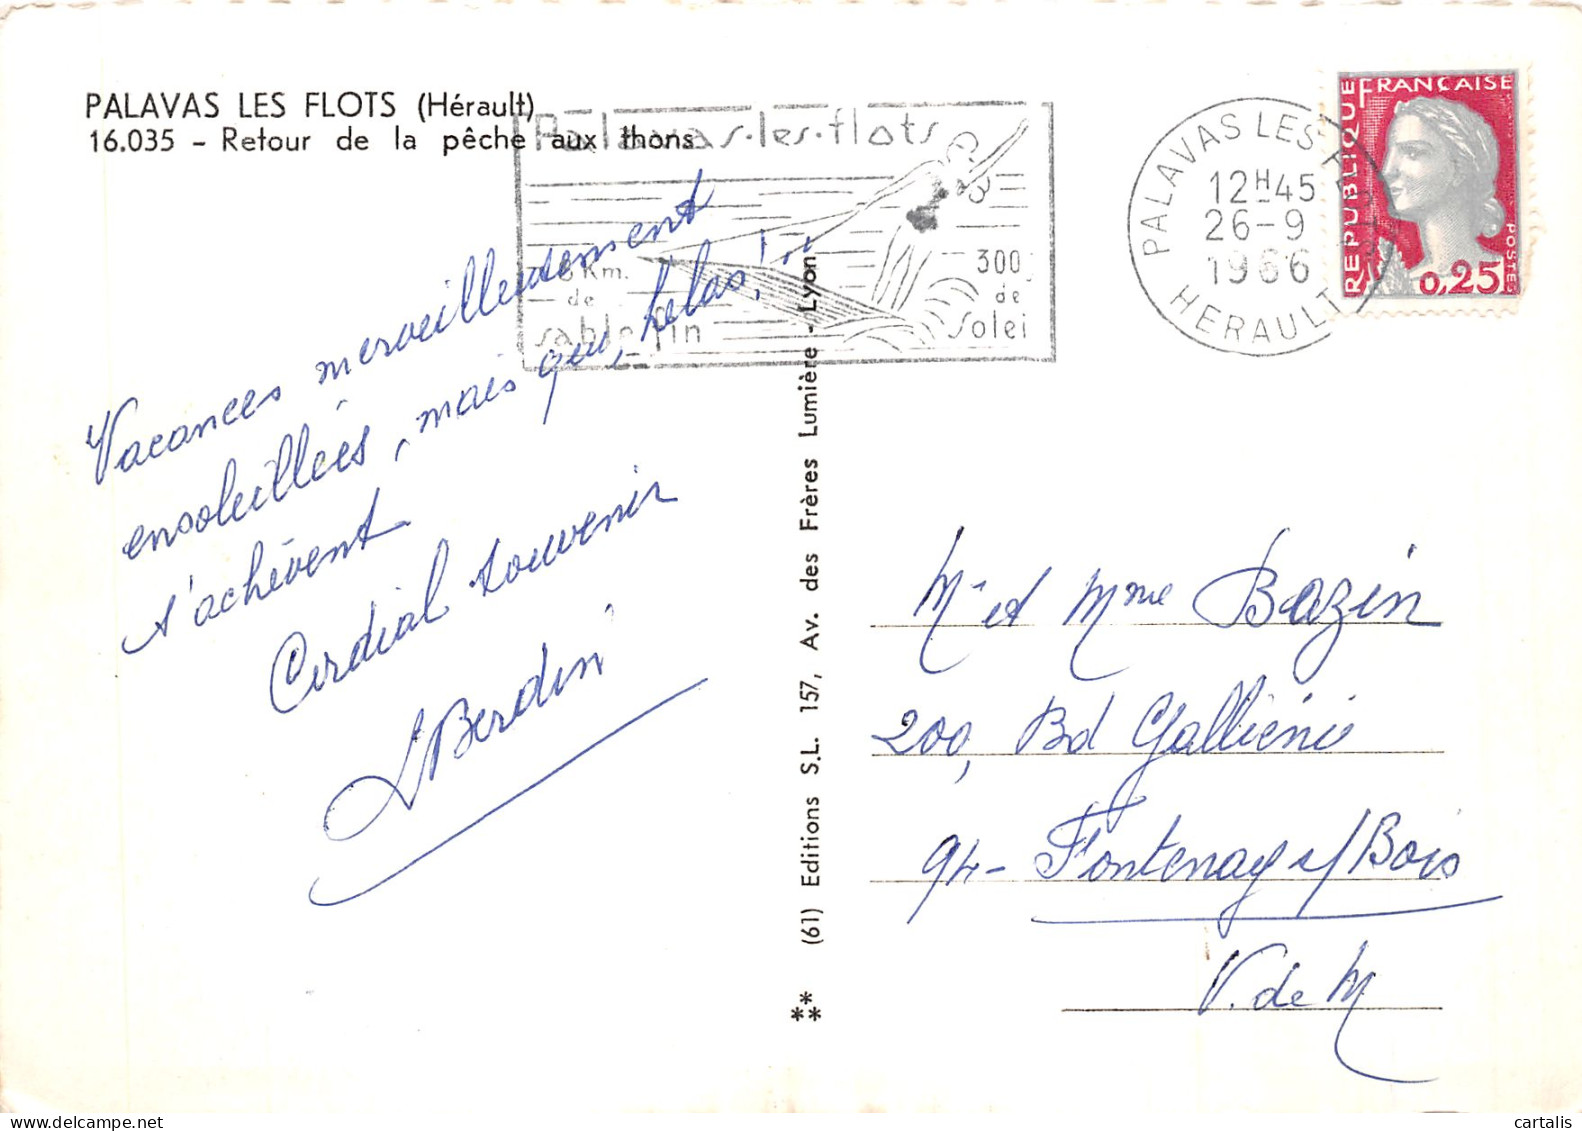 PALAVAS LES FLOTS (Hérault)
16.035 - Retour de la pêche aux thons
Palavas-les-flots
8 Km.
de
sable fin
300 j
de
Solei
PALAVAS LES FLOTS
12H45
26-9
1966
HERAULT
REPUBLIQUE FRANÇAISE
POSTES
0,25
Vacances merveilleusement
ensoleillées, mais qui, hélas!...
s'achèvent
Cordial souvenir
Berdin
(61) Editions S.L. 157, Av. des Frères Lumière - Lyon
Mr et Mme Bazin
200, Bd Galliéni
94- Fontenay s/Bois
V. de M
cartalis